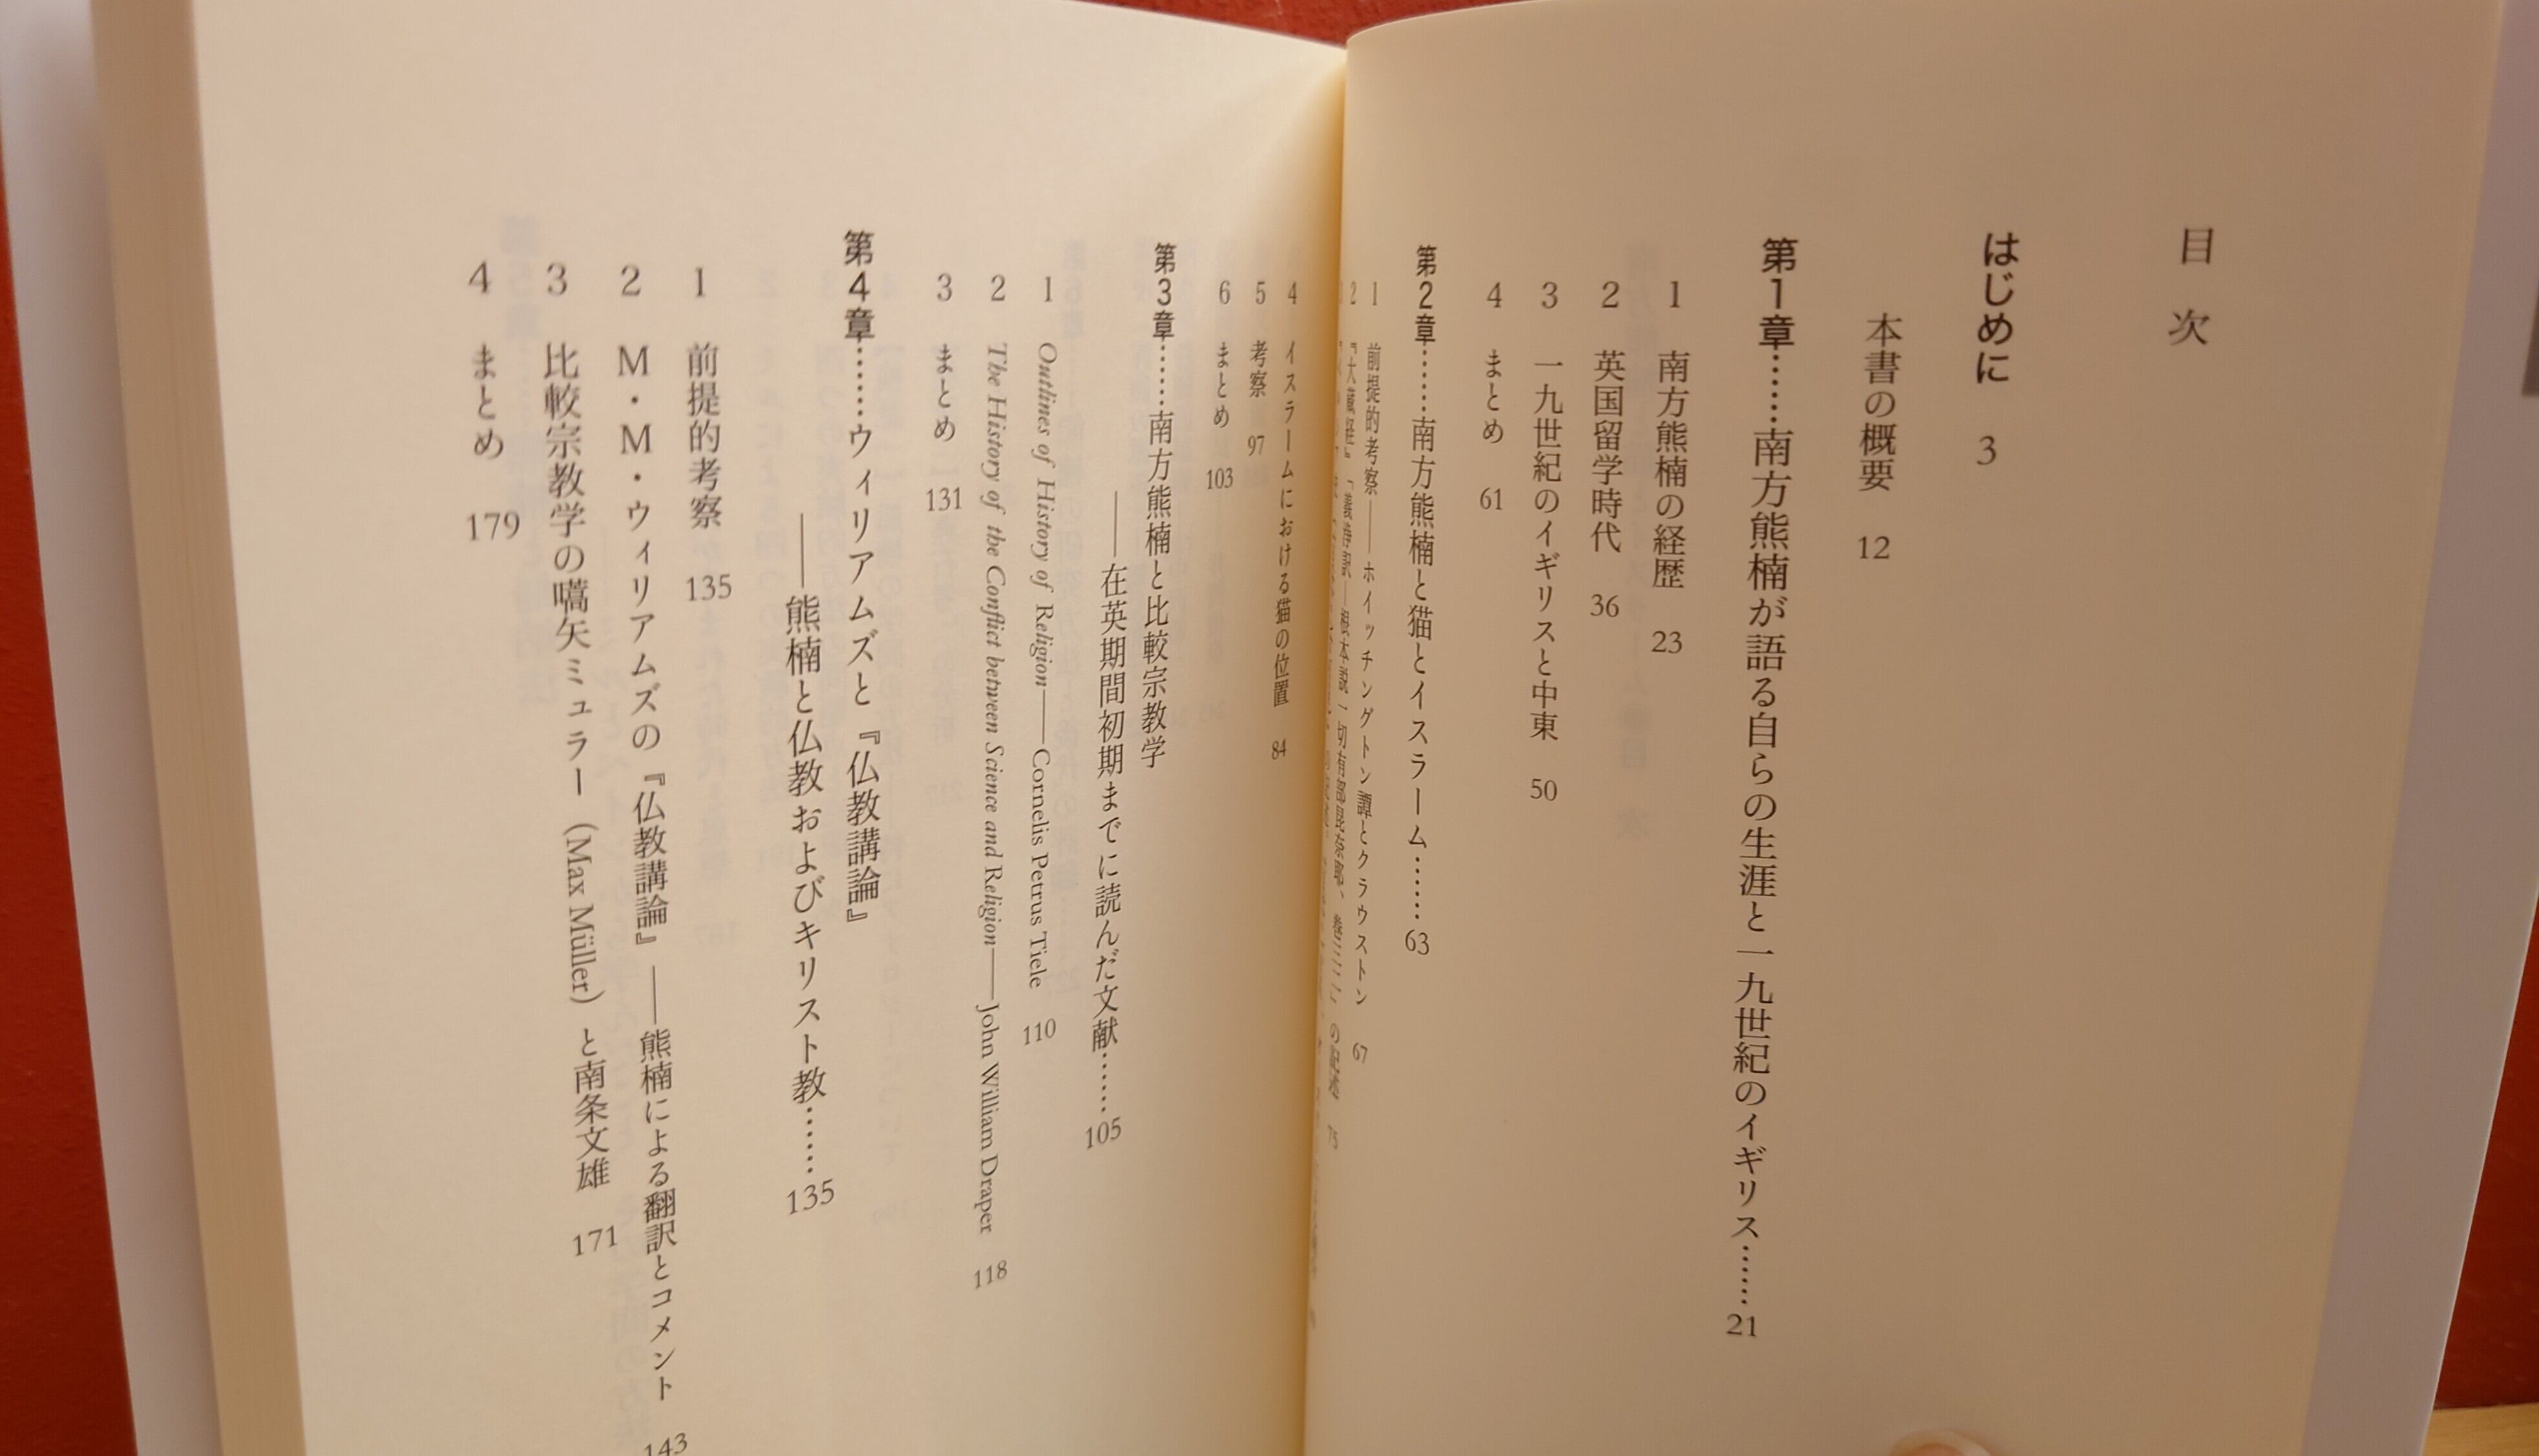 目次
はじめに 3
本書の概要 12
第1章……南方熊楠が語る自らの生涯と一九世紀のイギリス……21
1 南方熊楠の経歴 23
2 英国留学時代 36
3 一九世紀のイギリスと中東 50
4 まとめ 61
第2章……南方熊楠と猫とイスラーム……63
1 前提的考察――ホイッチングトン譚とクラウストン 67
2 『大蔵経』「義浄訳―根本説一切有部毘奈耶、巻三二」の記述 75
4 イスラームにおける猫の位置 84
5 考察 97
6 まとめ 103
第3章……南方熊楠と比較宗教学
――在英期間初期までに読んだ文献……105
1 Outlines of History of Religion――Cornelis Petrus Tiele 110
2 The History of the Conflict between Science and Religion――John William Draper 118
3 まとめ 131
第4章……ウィリアムズと『仏教講論』
――熊楠と仏教およびキリスト教……135
1 前提的考察 135
2 M・M・ウィリアムズの『仏教講論』――熊楠による翻訳とコメント 143
3 比較宗教学の嚆矢ミュラー（Max Müller）と南条文雄 171
4 まとめ 179